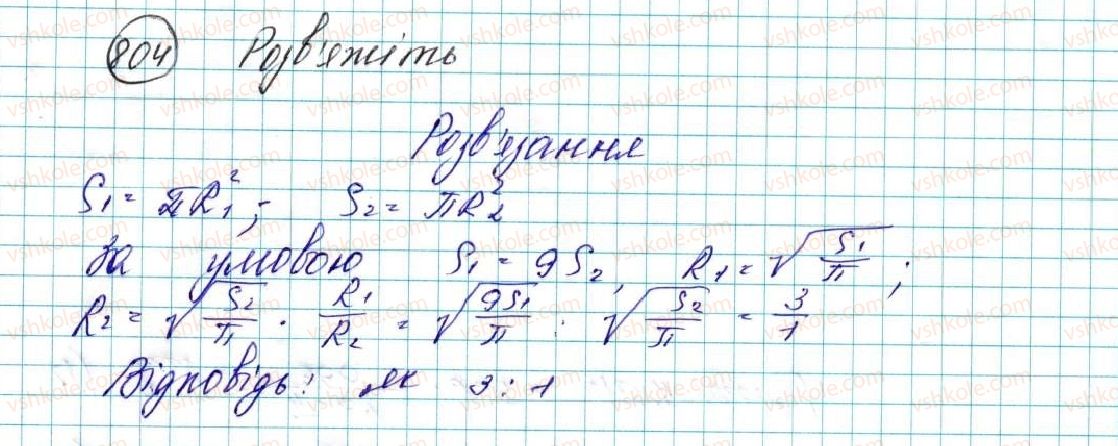 804 Розв'яжіть
Розв'язання
S₁ = πR₁²; S₂ = πR₂²
За умовою S₁ = 9S₂, R₁ = √(S₁/π);
R₂ = √(S₂/π) . R₁/R₂ = √(9S₁/π) : √(S₂/π) = 3/1
Відповідь: як 3 : 1